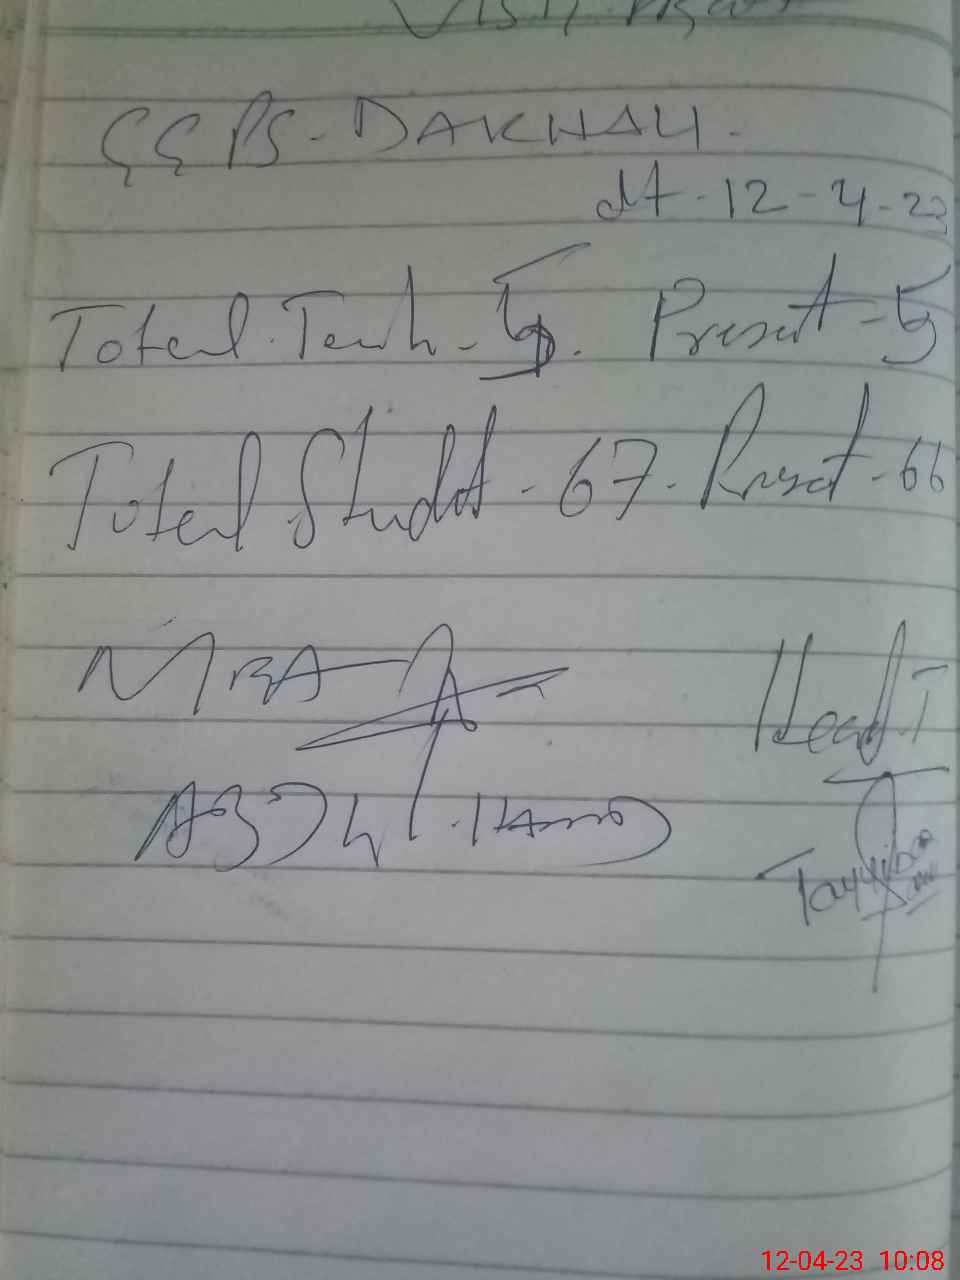 Visit
GGPS - DAKHALI.
dt - 12 - 4 - 23
Total. Teach - 5. Present - 5
Total Studdt - 67. Present - 66
MEA
Head. T
ABDUL. HAMID
Tayyiba
12-04-23 10:08